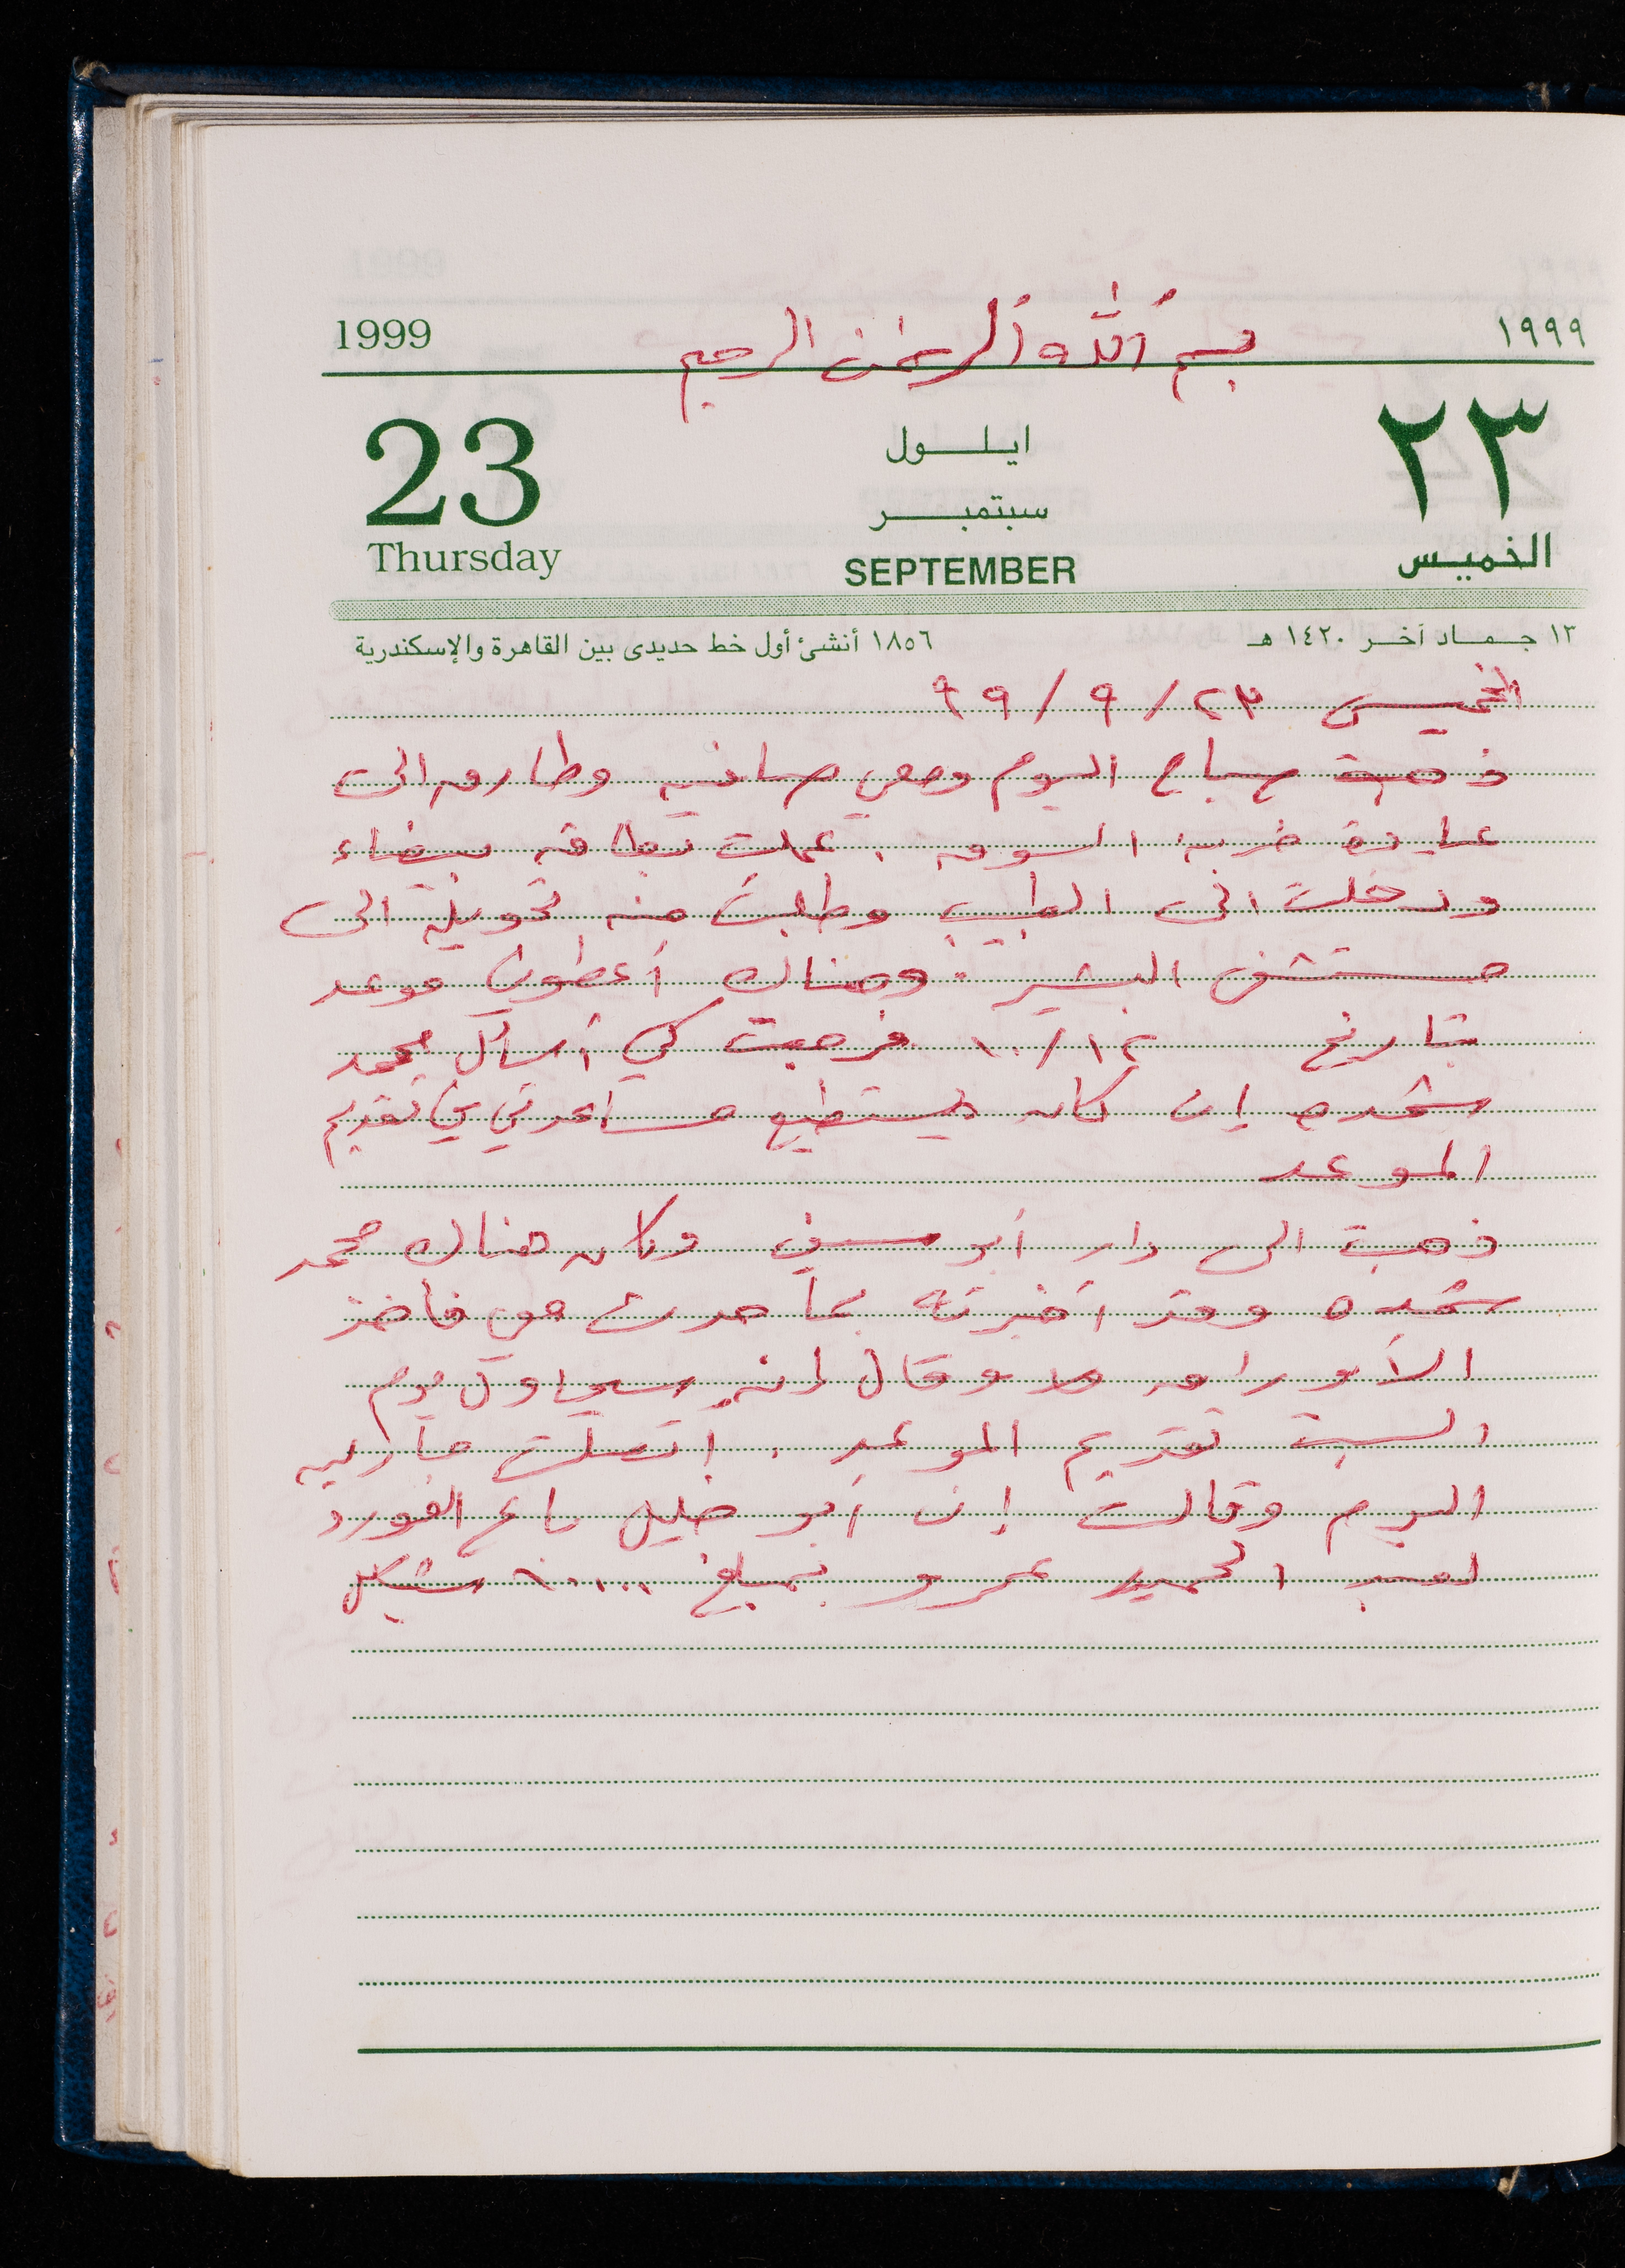 بسم الله الرحمن الرحيم
1999 ١٩٩٩
23 ايلول ٢٣
سبتمبر
Thursday SEPTEMBER الخميس
١٣ جماد آخر ١٤٢٠ هـ ١٨٥٦ أنشئ أول خط حديدى بين القاهرة والإسكندرية
الخميس ٢٣/٩/٩٩
ذهبت صباح اليوم ومعي صافيه وطارق الى
عيادة خربة السوق . عملت بطاقة بيضاء
ودخلت الى الطبيب وطلبت منه تحويلة الى
مستشفى البشير . وهناك أعطوني موعد
بتاريخ ١٠/١٢ فرجعت كي أسأل محمد
شحده إن كان يستطيع مساعدتي في تقديم
الموعد
ذهبت الى دار أبو سيف وكان هناك محمد
شحده وقد أخبرته بما حدث معي فأخذ
الأوراق وقال إنه سيحاول يوم
السبت تقديم الموعد . اتصلت
اليوم وقالت إن أبو خليل باع الفورد
لعبد الحميد عمرو بمبلغ شيكل